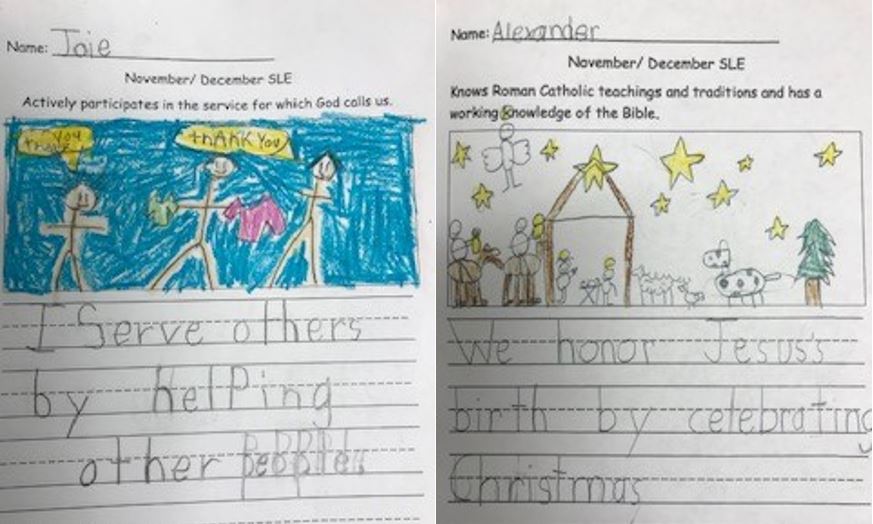 Name: Joie
November/ December SLE
Actively participates in the service for which God calls us.
thank you
thANK You
I Serve others
by helping
other
Name: Alexander
November/ December SLE
Knows Roman Catholic teachings and traditions and has a
working knowledge of the Bible.
We honor Jesus's
birth by celebrating
Christmas